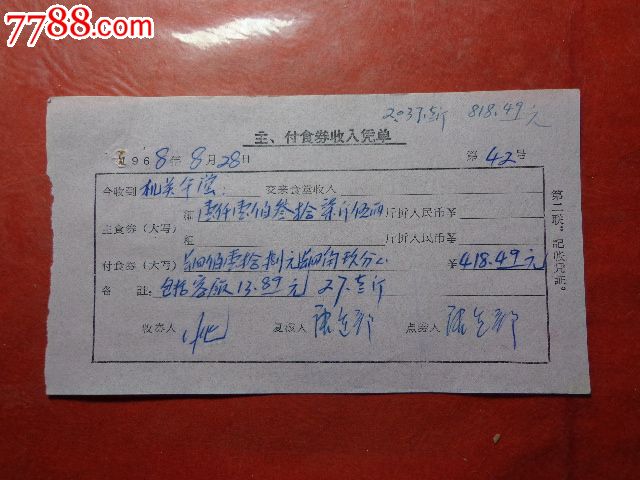 7788.com
2037.5斤 818.49元
主、付食券收入凭单
1968年8月28日 第42号
今收到 机关午 交来食堂收入
主食券（大写） 粗 壹仟壹佰叁拾柒斤伍两 斤折人民币￥
细 斤折人民币￥
付食券（大写） 肆佰壹拾捌元肆角玖分 ￥418.49元
备 註：包括客饭13.89元 27.5斤
收券人 复核人 点券人
第二联：记帐凭证。